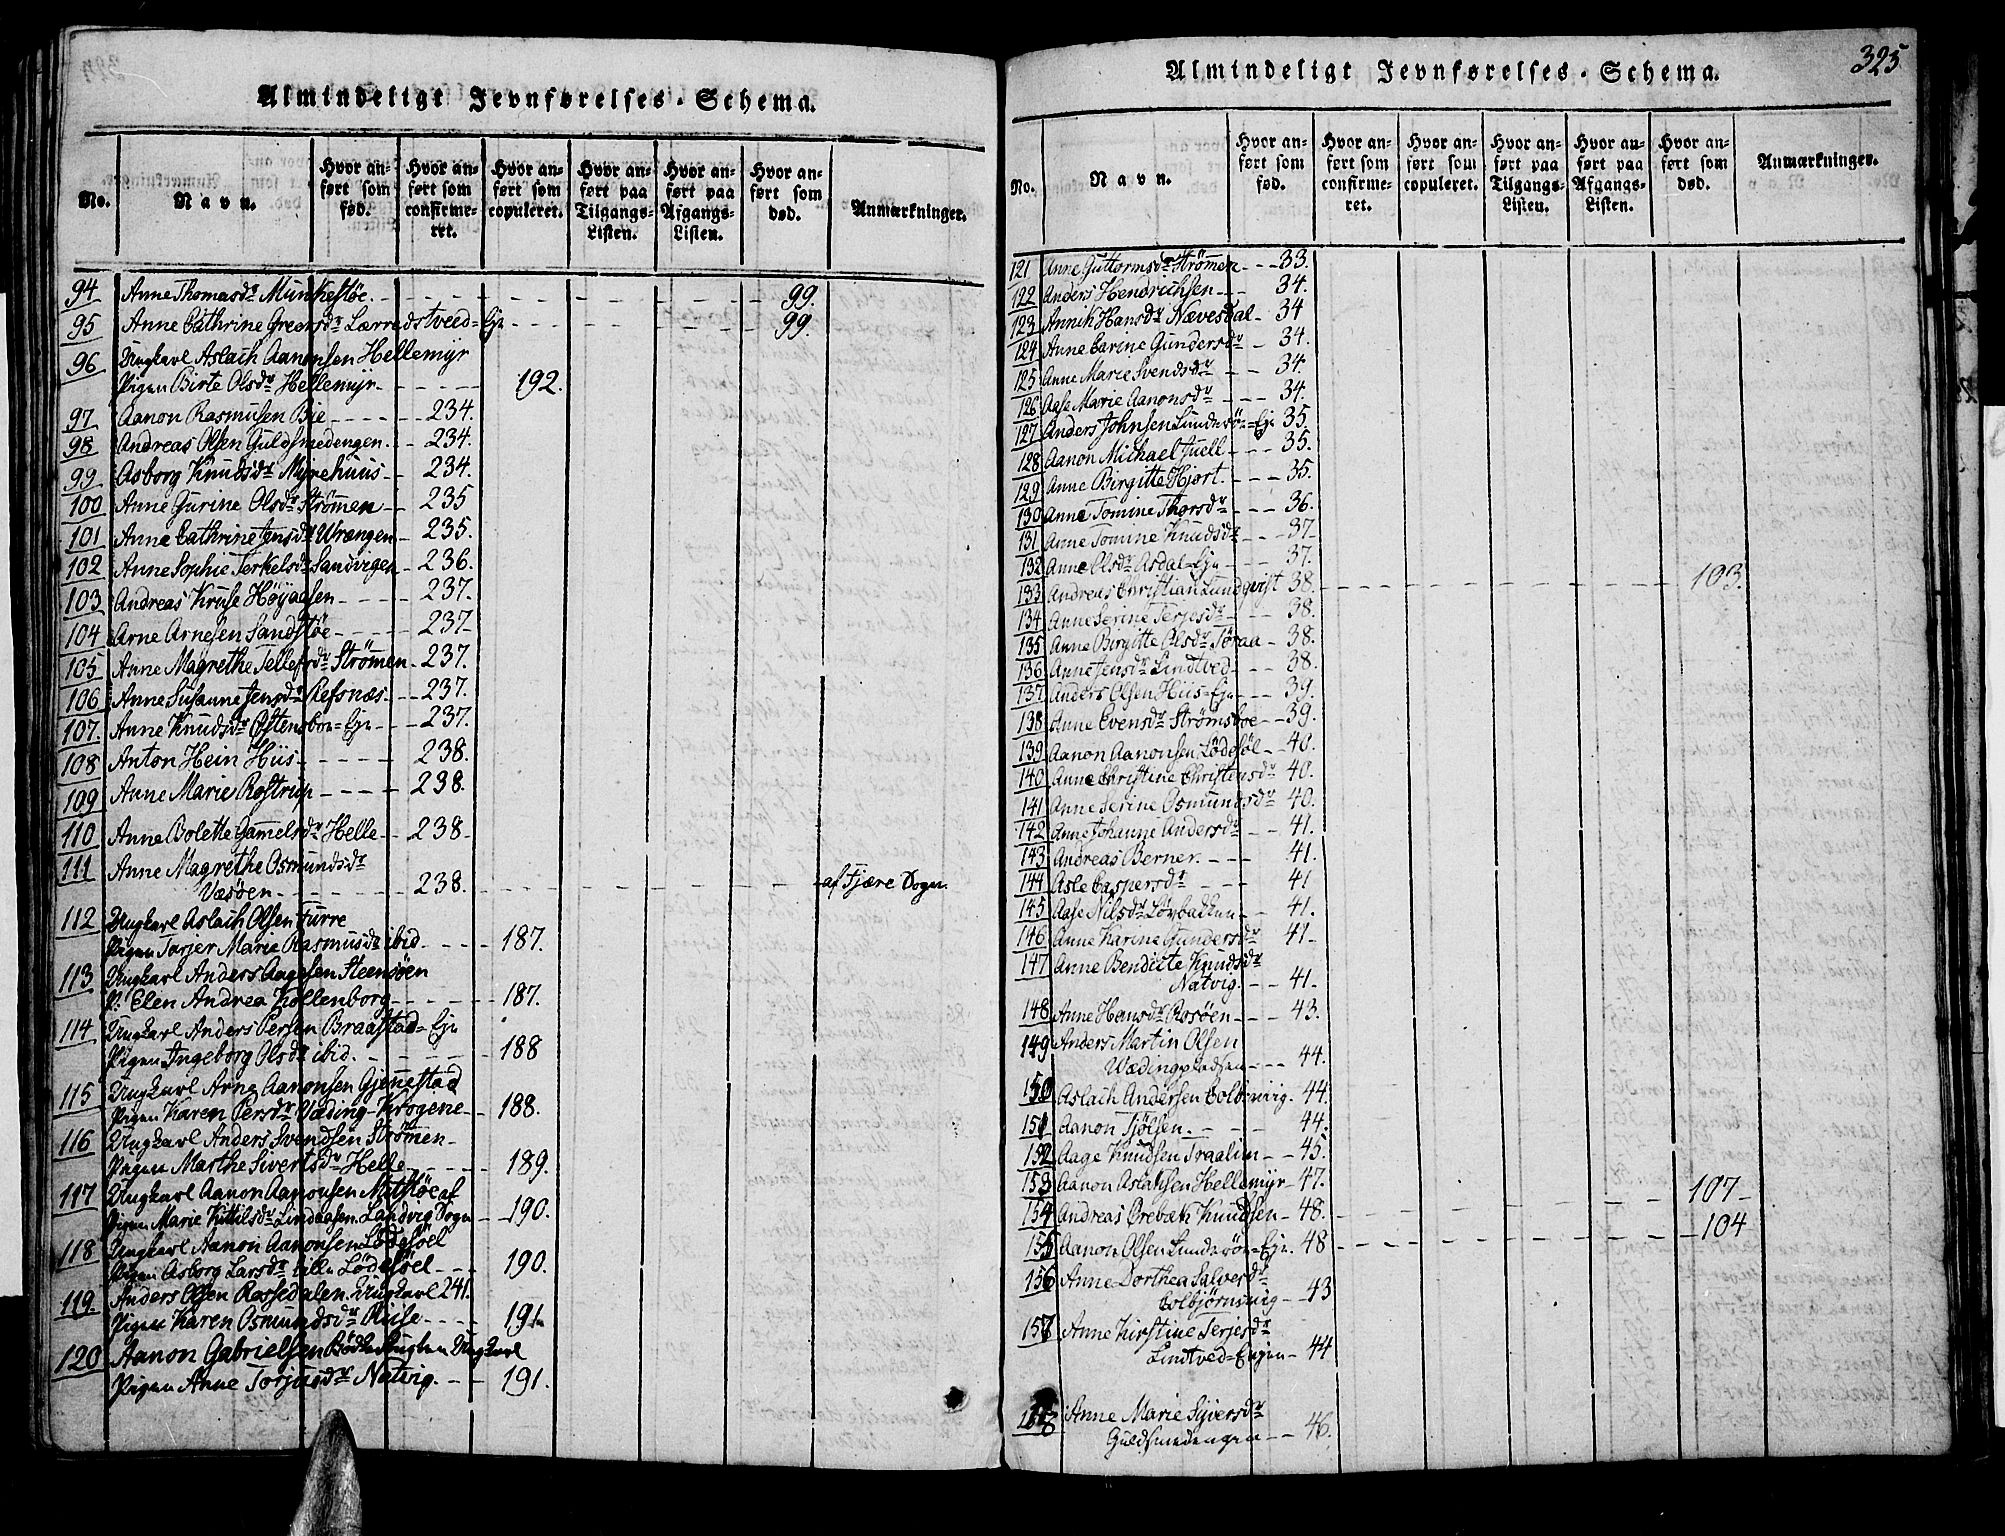 Almindeligt Jevnførelses-Schema.
No.
Navn.
Hvor an-
ført som
fød.
Hvor an-
ført som
confirme-
ret.
Hvor an-
ført som
copuleret.
Hvor an-
ført paa
Tilgangs-
Listen.
Hvor an-
ført paa
Afgangs-
Listen.
Hvor an-
ført som
død.
Anmærkninger.
94 Anne Thomasdr Munkestøe. 99.
95 Anne Cathrine Greersdr Lærredstveed=Eje 99.
96 Ungkarl Aslach Aanonsen Hellemyr
Pigen Birte Olsdr Hellemyr 192.
97 Aanon Rasmusen Bie 234.
98 Andreas Olsen Guldsmedengen 234.
99 Asborg Knudsdr Myrehuus 234.
100 Anne Gurine Olsdr Strømmen 235
101 Anne Cathrine Jensdr Wrangen 235.
102 Anne Sophie Terkelsdr Sandvigen 236.
103 Andreas Kruse Höyaasen 237.
104 Arne Arnesen Sandstøe 237
105 Anne Magrethe Tellefsdr Strömmen 237.
106 Anne Susanne Jensdr Refsnæs 237.
107. Anne Knudsdr Østensboe=Eje 237.
108 Anton Hein Hiis 238.
109 Anne Marie Rostrup 238.
110 Anne Bolette Gamelsdr Helle 238
111 Anne Magrethe Osmundsdr
Væsøen 238. af Fjære Sogn.
112 Ungkarl Aslach Olsen Furre
Pigen Torjer Marie Rasmusdr ibid. 187.
113 Ungkarl Anders Aagesen Steensöen
P. Elen Andrea Kollenborg 187.
114 Ungkarl Anders Persen Braastad=Eje
Pigen Ingeborg Olsdr ibid. 188
115 Ungkarl Arne Aanonsen Gjennestad
Pigen Karen Persdr Væding-Krogene 188.
116 Ungkarl Anders Svendsen Strömmen
Pigen Marthe Sivertsdr Helle 189.
117 Ungkarl Aanon Aanonsen af
Pigen Marie Kittilsdr Lindaasen Landvig Sogn 190.
118 Ungkarl Aanon Aanonsen Lödesöel
Pigen Asborg Larsdr Lödesöel 190.
119. Anders Olsen Rossedalen Ungkarl 241.
Pigen Karen Osmundsdr Riise 191.
120 Aanon Gabrielsen Ungkarl
Pigen Anne Torjusdr Natvig. 191.
325
Almindeligt Jevnførelses-Schema.
No.
Navn.
Hvor an-
ført som
fød.
Hvor an-
ført som
confirme-
ret.
Hvor an-
ført som
copuleret.
Hvor an-
ført paa
Tilgangs-
Listen.
Hvor an-
ført paa
Afgangs-
Listen.
Hvor an-
ført som
død.
Anmærkninger.
121 Anne Guttormsdr Strömmen 33.
122 Anders Hendrichsen 34.
123 Annik Hansdr Nævesdal 34
124 Anne Carine Gundersdr 34.
125 Anne Marie Svendsdr 34.
126 Aase Marie Aanonsdr 34.
127 Anders Johnsen Lunderö=Eje 35.
128 Aanon Michael Juell 35.
129 Anne Birgitte Hjort 35.
130 Anne Tomine Thorsdr 36.
131 Anne Tomine Knudsdr 37
132 Anne Olsdr Asdal=Eje 37.
133 Andreas Christian Lundqvist 38. 103.
134 Anne Serine Terjesdr 38.
135 Anne Birgitte Olsdr Toraa 38.
136 Anne Jensdr Lindtved 38.
137 Anders Olsen Hiis=Eje 39.
138 Anne Evensdr Strømsboe 39.
139 Aanon Aanonsen Lödesöl 40.
140 Anne Christine Christensdr 40.
141 Anne Serine Osmundsdr 40.
142 Anne Johanne Andersdr 41.
143 Andreas Berner. 41.
144 Asle Caspersdr 41
145 Aase Nilsdr Lörbakken 41.
146 Anne Karine Gundersdr 41
147 Anne Bendicte Knudsdr
Natvig. 41
148 Anne Hansdr Rosöen 43.
149 Anders Martin Olsen
Wædingpladsen 44.
150 Aslach Andersen Colbnvig. 44.
151 Aanon Tjölsen. 44.
152 Aage Knudsen Traalim 45.
153 Aanon Aslaksen Hellemyr 47. 107
154 Andreas Örebæk Knudsen 48. 104
155 Aanon Olsen Lunderöe=Eje. 48
156 Anne Dorthea Salvesdr
Colbjørnsvig 43
157 Anne Kirstine Terjesdr
Lindtved=Enjen 44
158 Anne Marie Syversdr
Guldsmedengen 46.